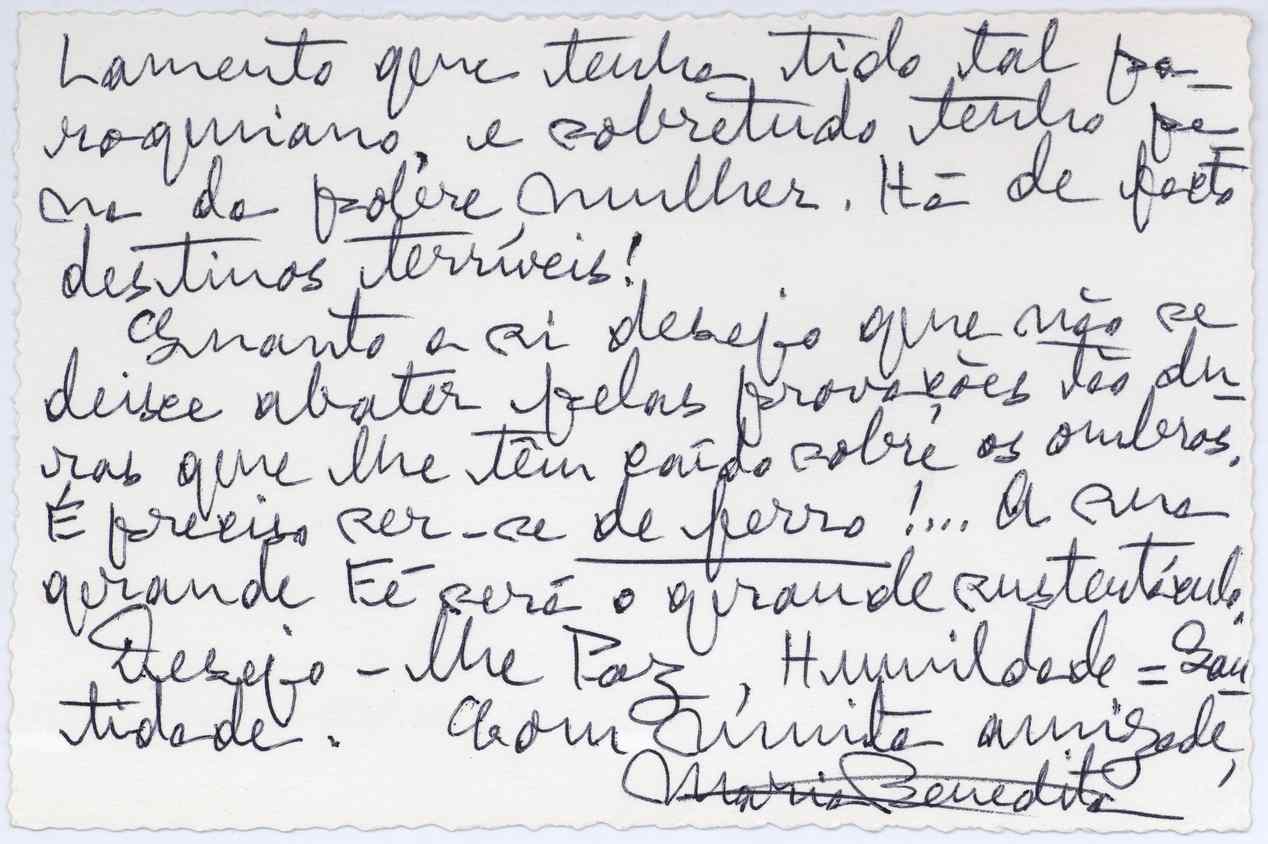 Lamento que tenha tido tal pa-
roquiano, e sobretudo tenho pe-
na da pobre mulher. Há de facto
destinos terríveis!
Quanto a si desejo que não se
deixe abater pelas provações tão du-
ras que lhe têm caído sobre os ombros.
É preciso ser-se de ferro !... A sua
grande Fé será o grande sustentáculo.
Desejo-lhe Paz, Humildade = San
tidade. Com muita amizade,
Maria Benedita